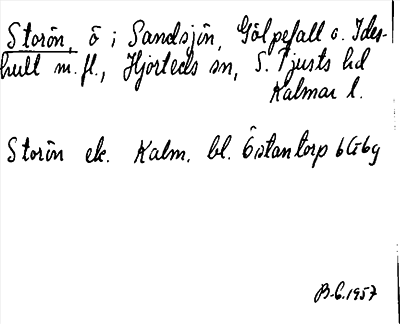 Storön, ö i Sandsjön, Gölpefall o. Ides-
hult m. fl., Hjorteds sn, S. Tjusts hd
Kalmar l.
Storön ek. Kalm. bl. Östantorp 6G6g
B-C. 1957